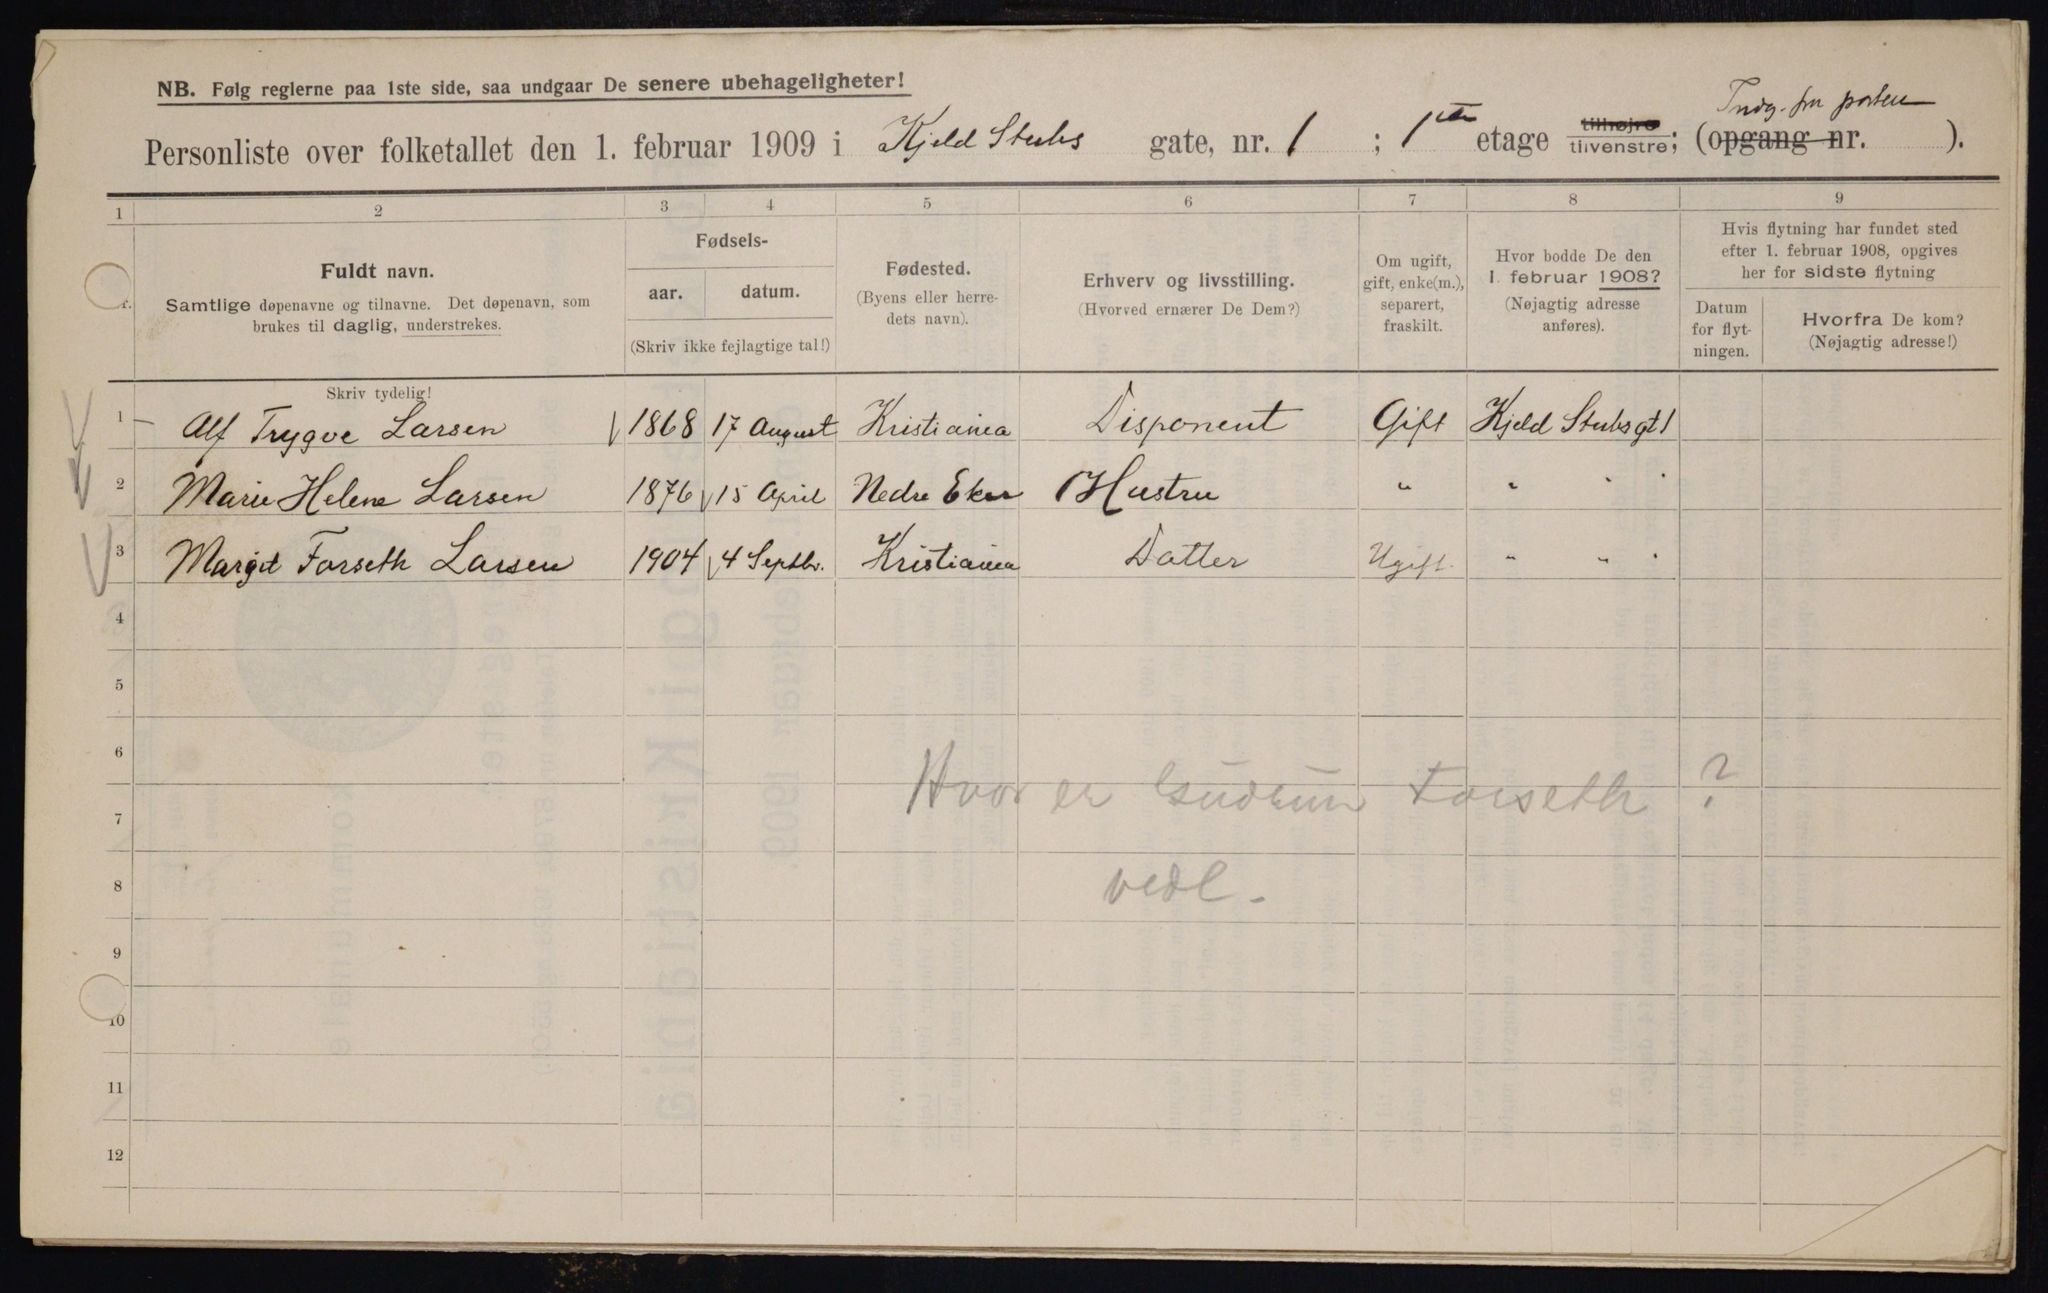 NB. Følg reglerne paa 1ste side, saa undgaar De senere ubehageligheter!
Indg. fra porten
Personliste over folketallet den 1. februar 1909 i Kjeld Stubs gate, nr. 1 ; 1ste etage tilhøjre tilvenstre; (opgang nr. ).
1 2 3 4 5 6 7 8 9
Nr.
Fuldt navn.
Samtlige døpenavne og tilnavne. Det døpenavn, som
brukes til daglig, understrekes.
Fødsels-
aar. datum.
(Skriv ikke fejlagtige tal!)
Fødested.
(Byens eller herre-
dets navn).
Erhverv og livsstilling.
(Hvorved ernærer De Dem?)
Om ugift,
gift, enke(m.),
separert,
fraskilt.
Hvor bodde De den
1. februar 1908?
(Nøjagtig adresse
anføres).
Hvis flytning har fundet sted
efter 1. februar 1908, opgives
her for sidste flytning
Datum
for flyt-
ningen.
Hvorfra De kom?
(Nøjagtig adresse!)
Skriv tydelig!
1 Alf Trygve Larsen 1868 17 August Kristiania Disponent Gift Kjeld Stubsgt 1
2 Marie Helene Larsen 1876 15 April Nedre Eker Hustru " " " "
3 Margit Forseth Larsen 1904 4 Septbr. Kristiania Datter Ugift. " " "
4
5
6
Hvor er Gudrun Forseth ?
7
8 vedl.
9
10
11
12